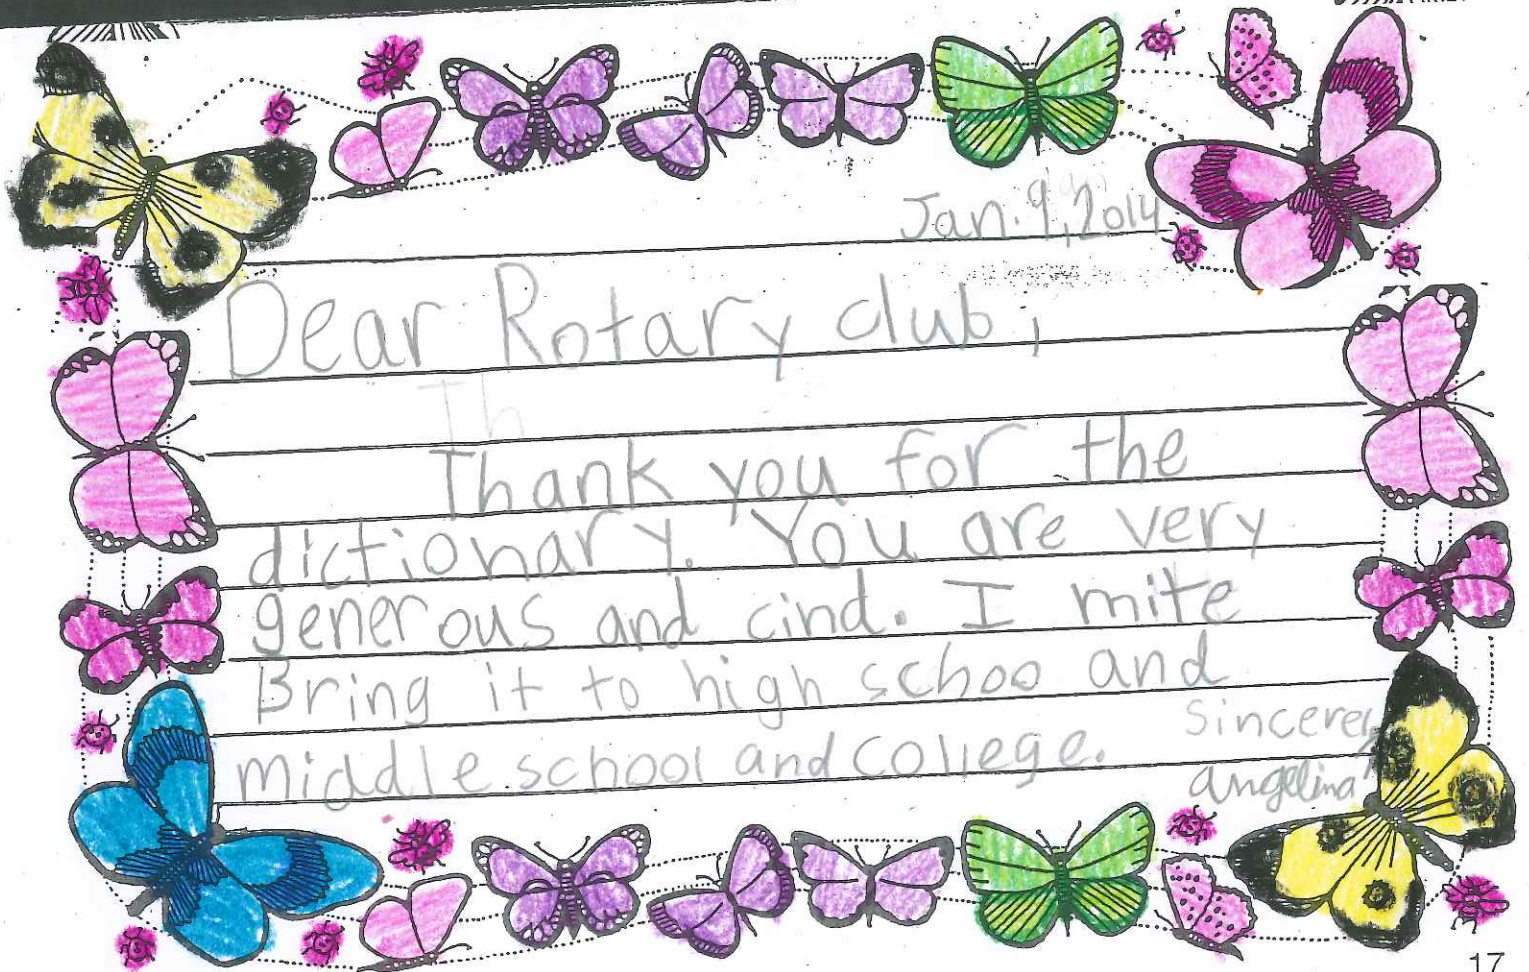 Jan. 9, 2014
Dear Rotary club,
Th
Thank you for the
dictionary. You are very
generous and cind. I mite
Bring it to high schoo and
middle school and college.
Sincerely
angelina
17